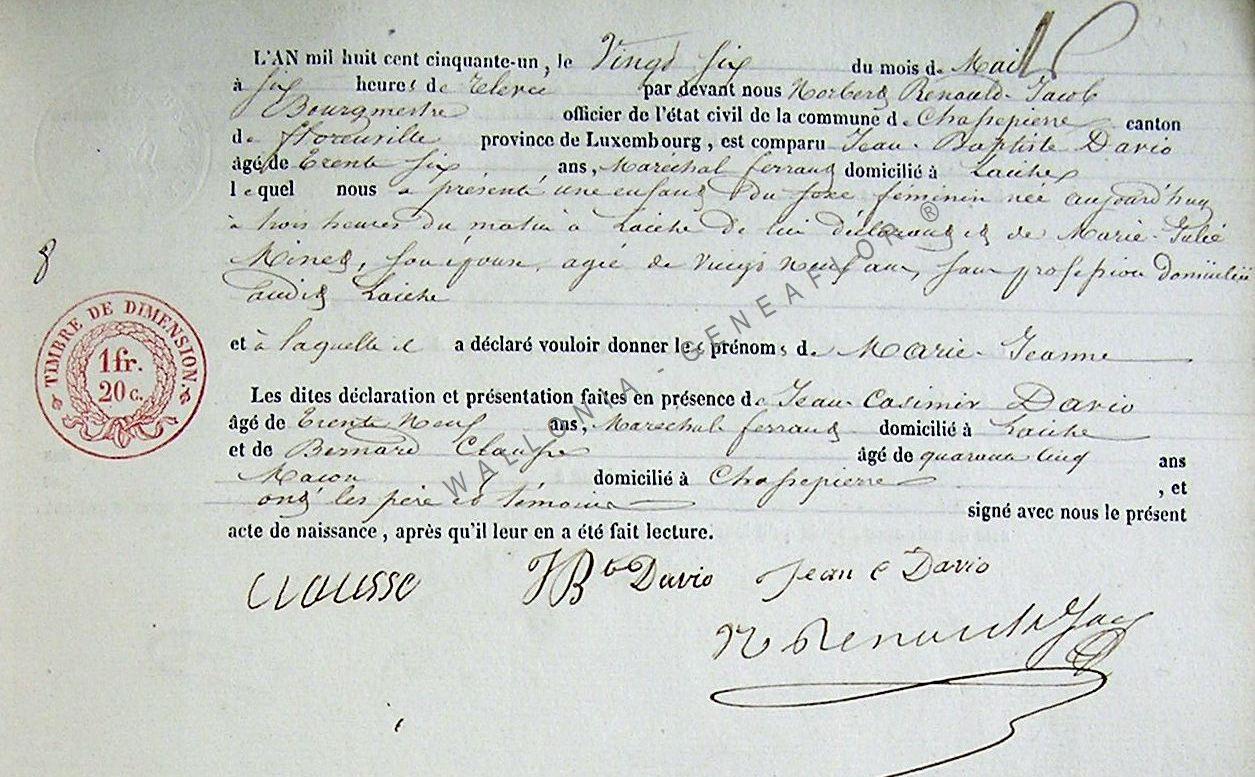 L'AN mil huit cent cinquante-un, le Vingt six du mois de Mai
à six heures de relevée par devant nous Norbert Renauld-Jacob
Bourgmestre officier de l'état civil de la commune de Chassepierre canton
de florenville province de Luxembourg, est comparu Jean-Baptiste Davio
âgé de trente six ans, Maréchal ferrant domicilié à Laiche
lequel nous a présenté une enfant du sexe féminin née aujourd'huy
à trois heures du matin à Laiche de lui déclarant et de Marie-Julie
Minet, son épouse, agée de vingt neuf ans, sans profession domiciliée
audit Laiche
et à laquelle il a déclaré vouloir donner les prénoms de Marie-Jeanne
Les dites déclaration et présentation faites en présence de Jean-Casimir Davio
âgé de trente neuf ans, Maréchal ferrant domicilié à Laiche
et de Bernard Clausse âgé de quarante cinq ans
Maçon domicilié à Chassepierre, et
ont les père et témoins signé avec nous le présent
acte de naissance, après qu'il leur en a été fait lecture.
Clausse JBte Davio Jean C Davio
N Renauld Jacob
8
TIMBRE DE DIMENSION.
1 fr.
20 c.
WALLONIA - GENEAFLOR ®